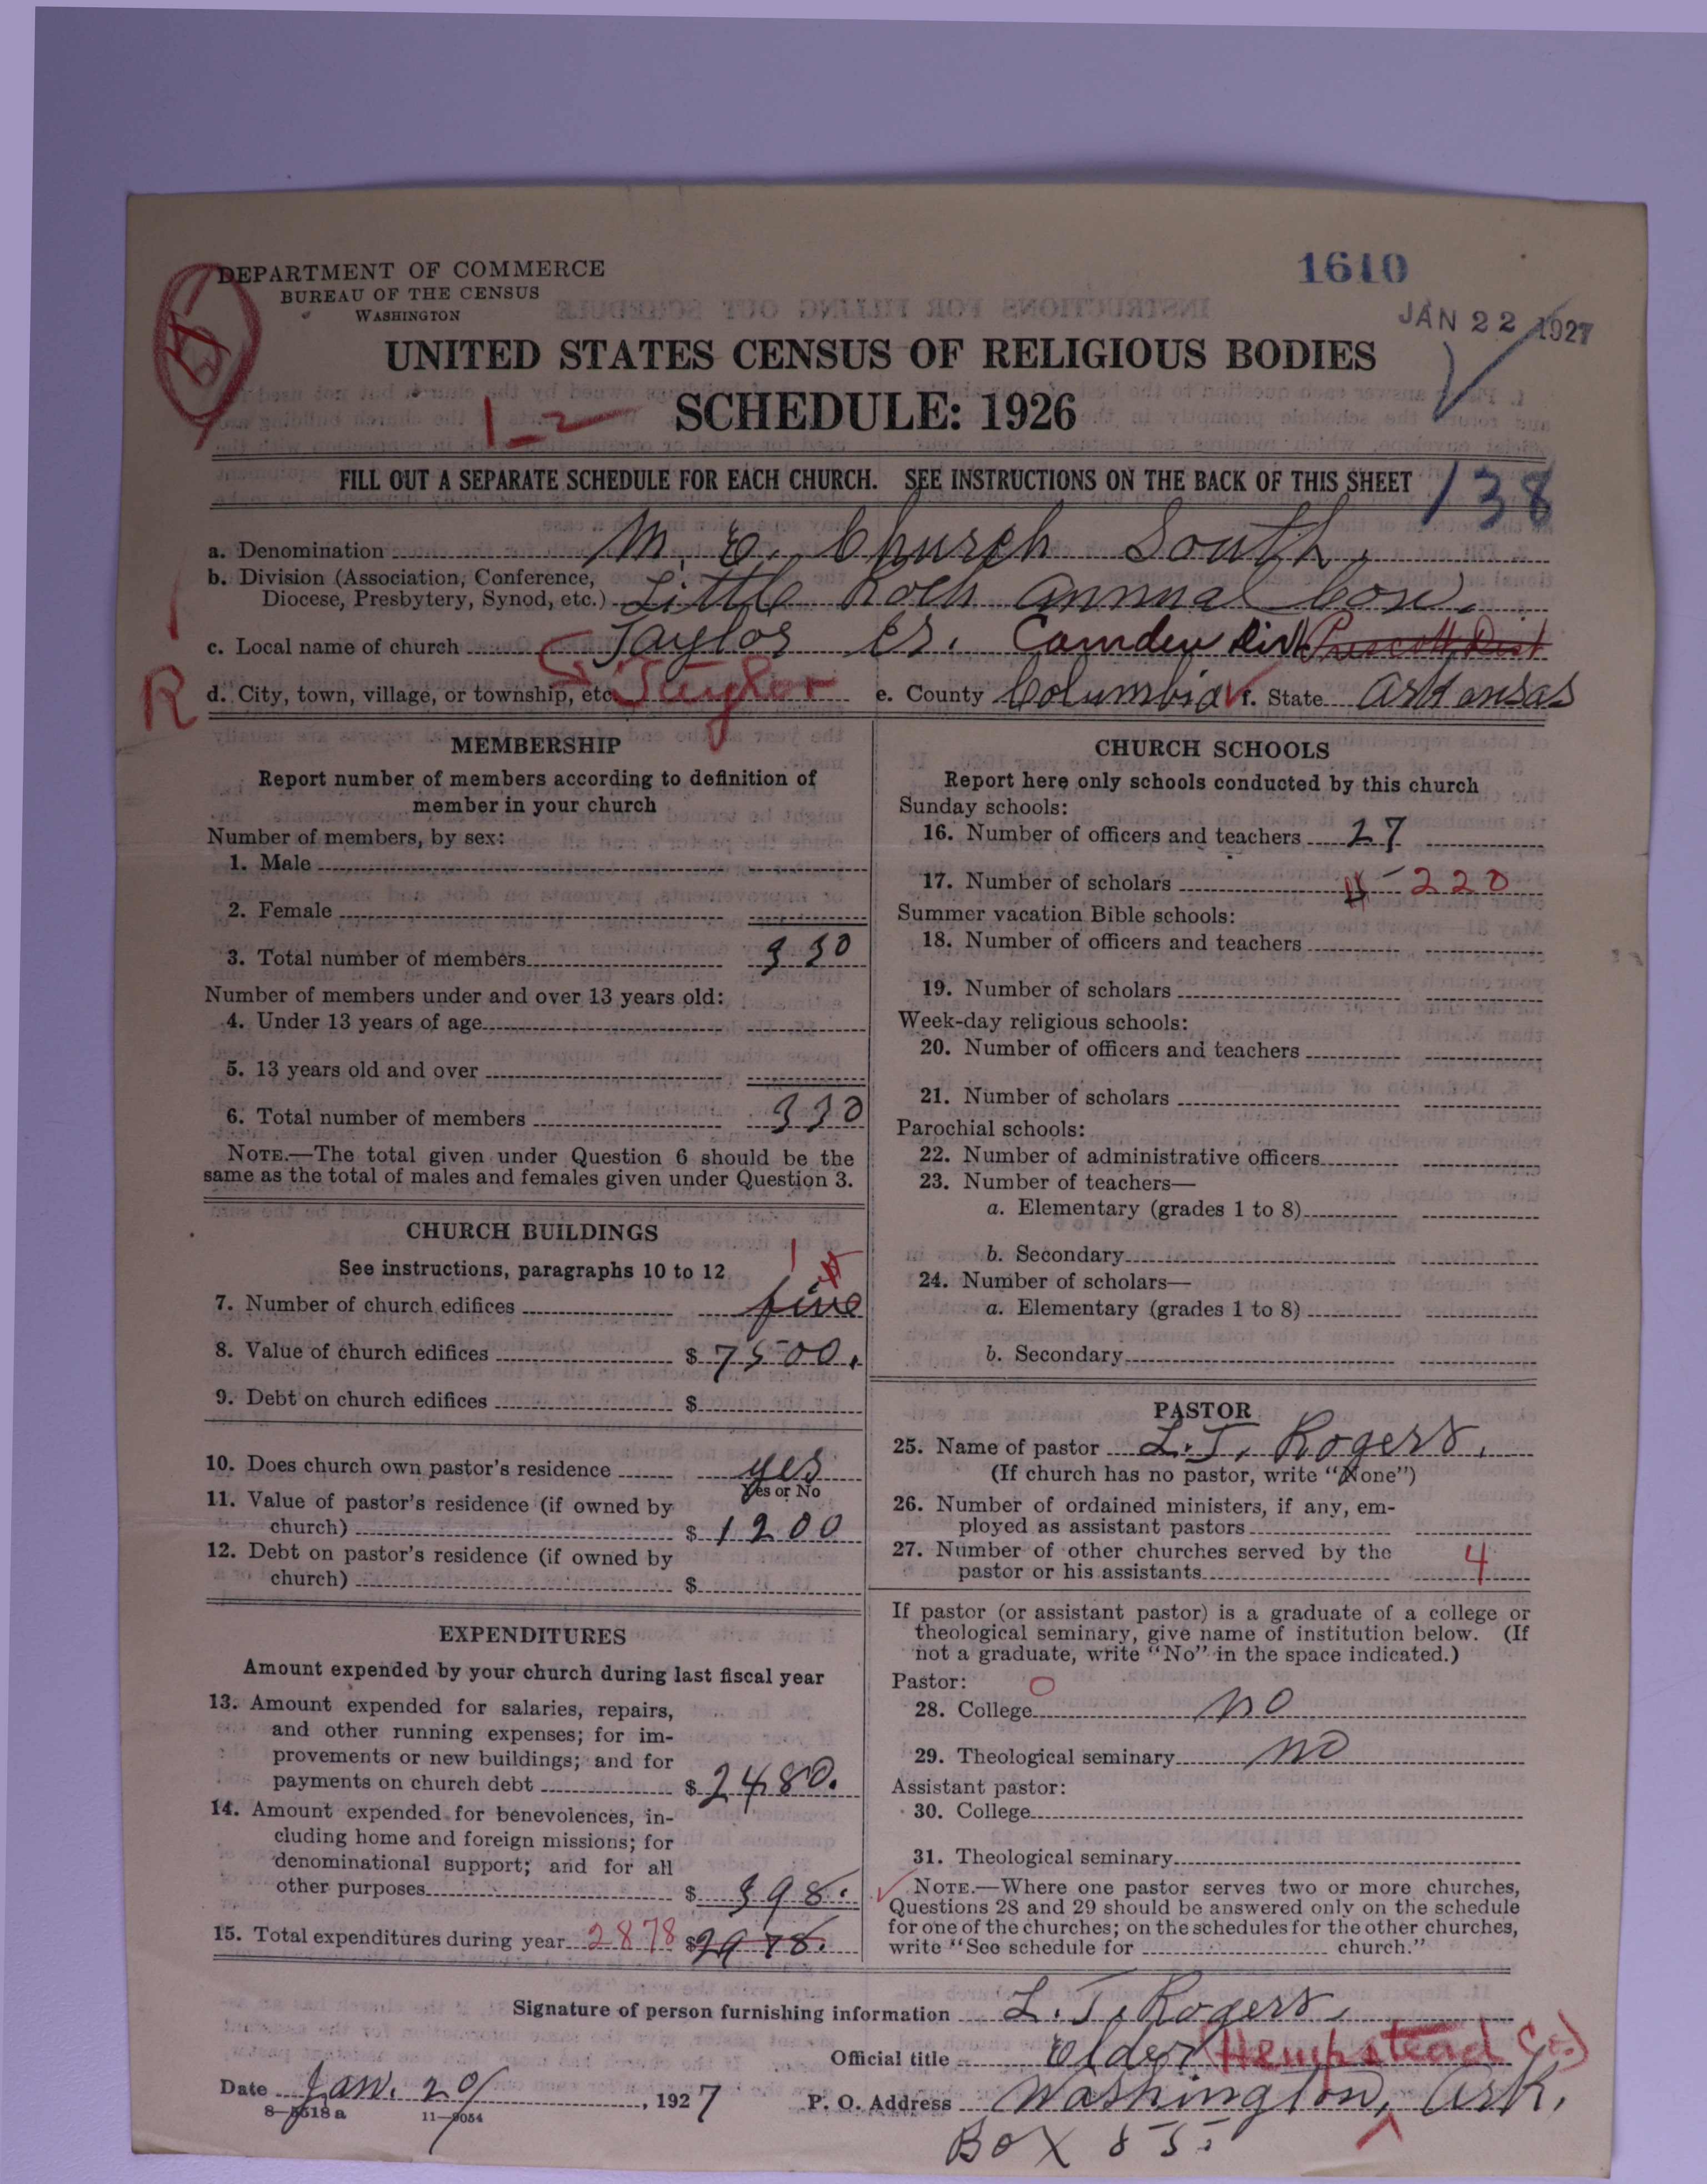 1610
DEPARTMENT OF COMMERCE
BUREAU OF THE CENSUS
WASHINGTON
JAN 22 1927
UNITED STATES CENSUS OF RELIGIOUS BODIES
SCHEDULE: 1926
FILL OUT A SEPARATE SCHEDULE FOR EACH CHURCH. SEE INSTRUCTIONS ON THE BACK OF THIS SHEET
138
a. Denomination M. E. Church South.
b. Division (Association, Conference,
Diocese, Presbytery, Synod, etc.) Little Rock Annual Con.
c. Local name of church Taylor Cr. Camden Dist Prescott Dist
R
d. City, town, village, or township, etc. Taylor e. County Columbia f. State Arkansas
MEMBERSHIP
Report number of members according to definition of
member in your church
Number of members, by sex:
1. Male
2. Female
3. Total number of members 330
Number of members under and over 13 years old:
4. Under 13 years of age
5. 13 years old and over
6. Total number of members 330
NOTE.—The total given under Question 6 should be the
same as the total of males and females given under Question 3.
CHURCH BUILDINGS
See instructions, paragraphs 10 to 12
7. Number of church edifices five
8. Value of church edifices $ 7500.
9. Debt on church edifices $
10. Does church own pastor's residence yes
Yes or No
11. Value of pastor's residence (if owned by
church) $ 1200
12. Debt on pastor's residence (if owned by
church) $
EXPENDITURES
Amount expended by your church during last fiscal year
13. Amount expended for salaries, repairs,
and other running expenses; for im-
provements or new buildings; and for
payments on church debt $ 2480.
14. Amount expended for benevolences, in-
cluding home and foreign missions; for
denominational support; and for all
other purposes $ 398.
15. Total expenditures during year 2878 $ 2978.
CHURCH SCHOOLS
Report here only schools conducted by this church
Sunday schools:
16. Number of officers and teachers 27
17. Number of scholars 220
Summer vacation Bible schools:
18. Number of officers and teachers
19. Number of scholars
Week-day religious schools:
20. Number of officers and teachers
21. Number of scholars
Parochial schools:
22. Number of administrative officers
23. Number of teachers—
a. Elementary (grades 1 to 8)
b. Secondary
24. Number of scholars—
a. Elementary (grades 1 to 8)
b. Secondary
PASTOR
25. Name of pastor L. T. Rogers.
(If church has no pastor, write "None")
26. Number of ordained ministers, if any, em-
ployed as assistant pastors
27. Number of other churches served by the
pastor or his assistants 4
If pastor (or assistant pastor) is a graduate of a college or
theological seminary, give name of institution below. (If
not a graduate, write "No" in the space indicated.)
Pastor: O
28. College no
29. Theological seminary no
Assistant pastor:
30. College
31. Theological seminary
NOTE.—Where one pastor serves two or more churches,
Questions 28 and 29 should be answered only on the schedule
for one of the churches; on the schedules for the other churches,
write "See schedule for church."
Signature of person furnishing information L. T. Rogers.
Official title Elder (Hempstead Co.)
Date Jan. 20/, 1927 P. O. Address Washington, Ark.
8—5518a 11—9054
BOX 85.